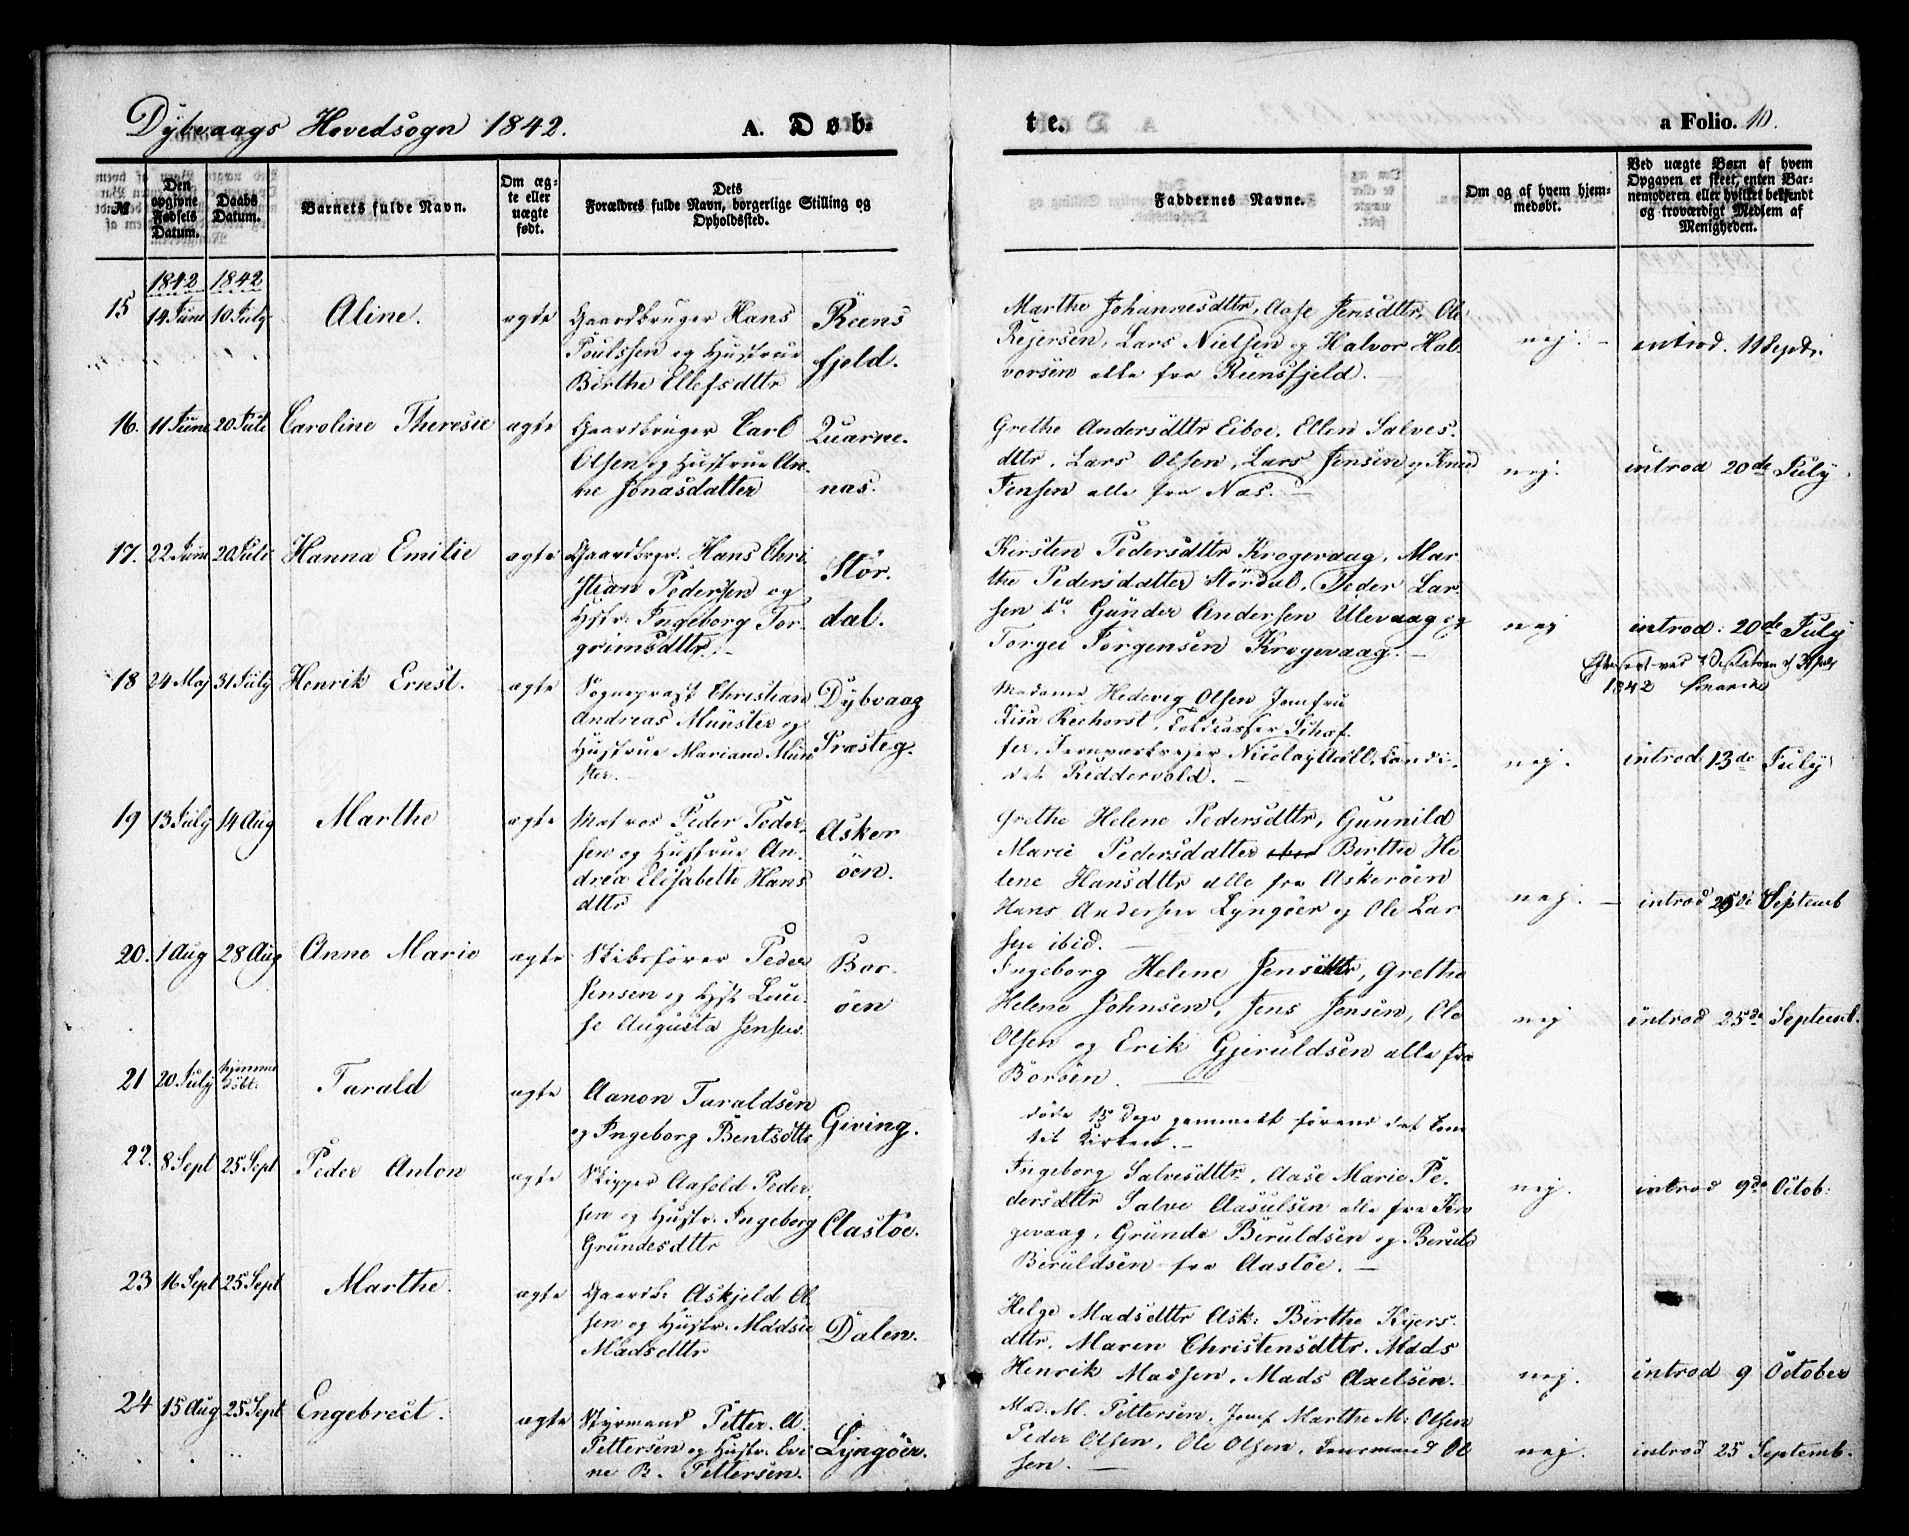 Dybvaags Hovedsogn 1842. A. Døb- te. a Folio. 10.
№ Den opgivne Fødsels Datum. Daabs Datum. Barnets fulde Navn. Om ægte eller uægte født. Dets Forældres fulde Navn, borgerlige Stilling og Opholdssted. Faddernes Navne. Om og af hvem hjemmedøbt. Ved uægte Børn af hvem Opgaven er skeet, enten Barnemoderen eller hvilket bekjendt og troværdigt Medlem af Menigheden.
1842 1842
15 14 Juni 10 July Aline. ægte
Gaardbruger Hans
Poulssen og Hustrue
Birthe Ellefsdttr
Reens
fjeld.
Marthe Johannesdttr, Aase Jensdttr, Ole
Rejersen, Lars Nielsen og Halvor Hal-
vorsen alle fra Rensfjeld.
nej. introd. 11 Septr.
16. 11 Juni 20 Juli Caroline Theresie ægte
Gaardbruger Carl
Olsen og Hustrue An-
ne Jonasdatter
Quarne-
nas.
Grethe Andersdttr Eiboe. Ellen Salves-
dttr, Lars Olsen, Lars Jensen og Knud
Jensen alle fra Næs.
nej. introd 20de July
17. 22 Juni 20 Juli Hanna Emilie ægte
Gaardbrgr. Hans Chri-
stian Pedersen og
Hstr. Ingeborg Tor-
grimsdttr.
Stør-
dal.
Kirsten Pedersdttr Krogevaag, Mar-
the Pedersdatter Størdal, Peder Lar-
sen do Gunder Andersen Ulevaag og
Torgei Jörgensen Krogevaag.
nej introd: 20de July
18 24 Maj 31 July Henrik Ernst. ægte
Sognepræst Christian
Andreas Münster og
Hustrue Mariane Mün-
ster.
Dybvaag
Præsteg.
Madame Hedevig Olsen Jomfru
Lisa Reehorst,
Nicolay Aall, Candi-
dat Riddervold.
1842
nej. introd 13de July
19 13 July 14 Aug Marthe ægte
Matros Peder Peder-
sen og Hustrue An-
drea Elisabethe Hans
dttr
Asker
öen.
Grethe Helene Pedersdttr, Gunnild
Marie Pedersdatter Birthe He-
lene Hansdttr alle fra Askeröen
Hans Andersen Lyngöer og Ole Lar-
sen ibid.
nej. introd 25de Septemb
20. 1 Aug 28 Aug Anne Marie ægte
Skibsfører Peder
Jensen og Hst Loui-
se Augusta Jensen.
Bor-
öen
Ingeborg Helene Jensdttr, Grethe
Helene Johnsen, Jens Jensen, Ole
Olsen og Erik Gjeruldsen alle fra
Boröen.
nej introd 25de Septemb.
21 20 July hjemme døbt. Tarald ægte
Aanon Taraldsen
og Ingeborg Bentsdttr
Giving.
døde 15 Dage gammelt förend det kom
til Kirken.
22. 8 Sept 25 Sept Peder Anton ægte
Skipper Aasold Peder-
sen og Hustr. Ingeborg
Grundesdttr
Aastöe.
Ingeborg Salvesdttr, Aase Marie Pe-
dersdttr Salve Aasulsen alle fra Kro
gevaag, Grunde Beruldsen og Beruld
Beruldsen fra Aastöe.
nej. introd 9de Octob:
23 16 Sept 25 Sept Marthe. ægte
Gaardb. Askjeld Ol-
sen og Hustr. Madsie
Madsdttr
Dalen.
Helge Madsdttr Ask: Birthe Kyers-
dttr, Maren Christensdttr, Mads
Henrik Madsen, Mads Axelsen.
nej. introd 9 October
24 15 Aug 25 Sept Engebrect. ægte
Styrmand Petter A.
Pettersen og Hustr. Evi-
ne B. Pettersen.
Lyngöer.
Mad. M. Pettersen, Jomf Marthe M: Olsen
Peder Olsen, Ole Olsen, Ol-
sen.
nej. introd 25 Septemb.